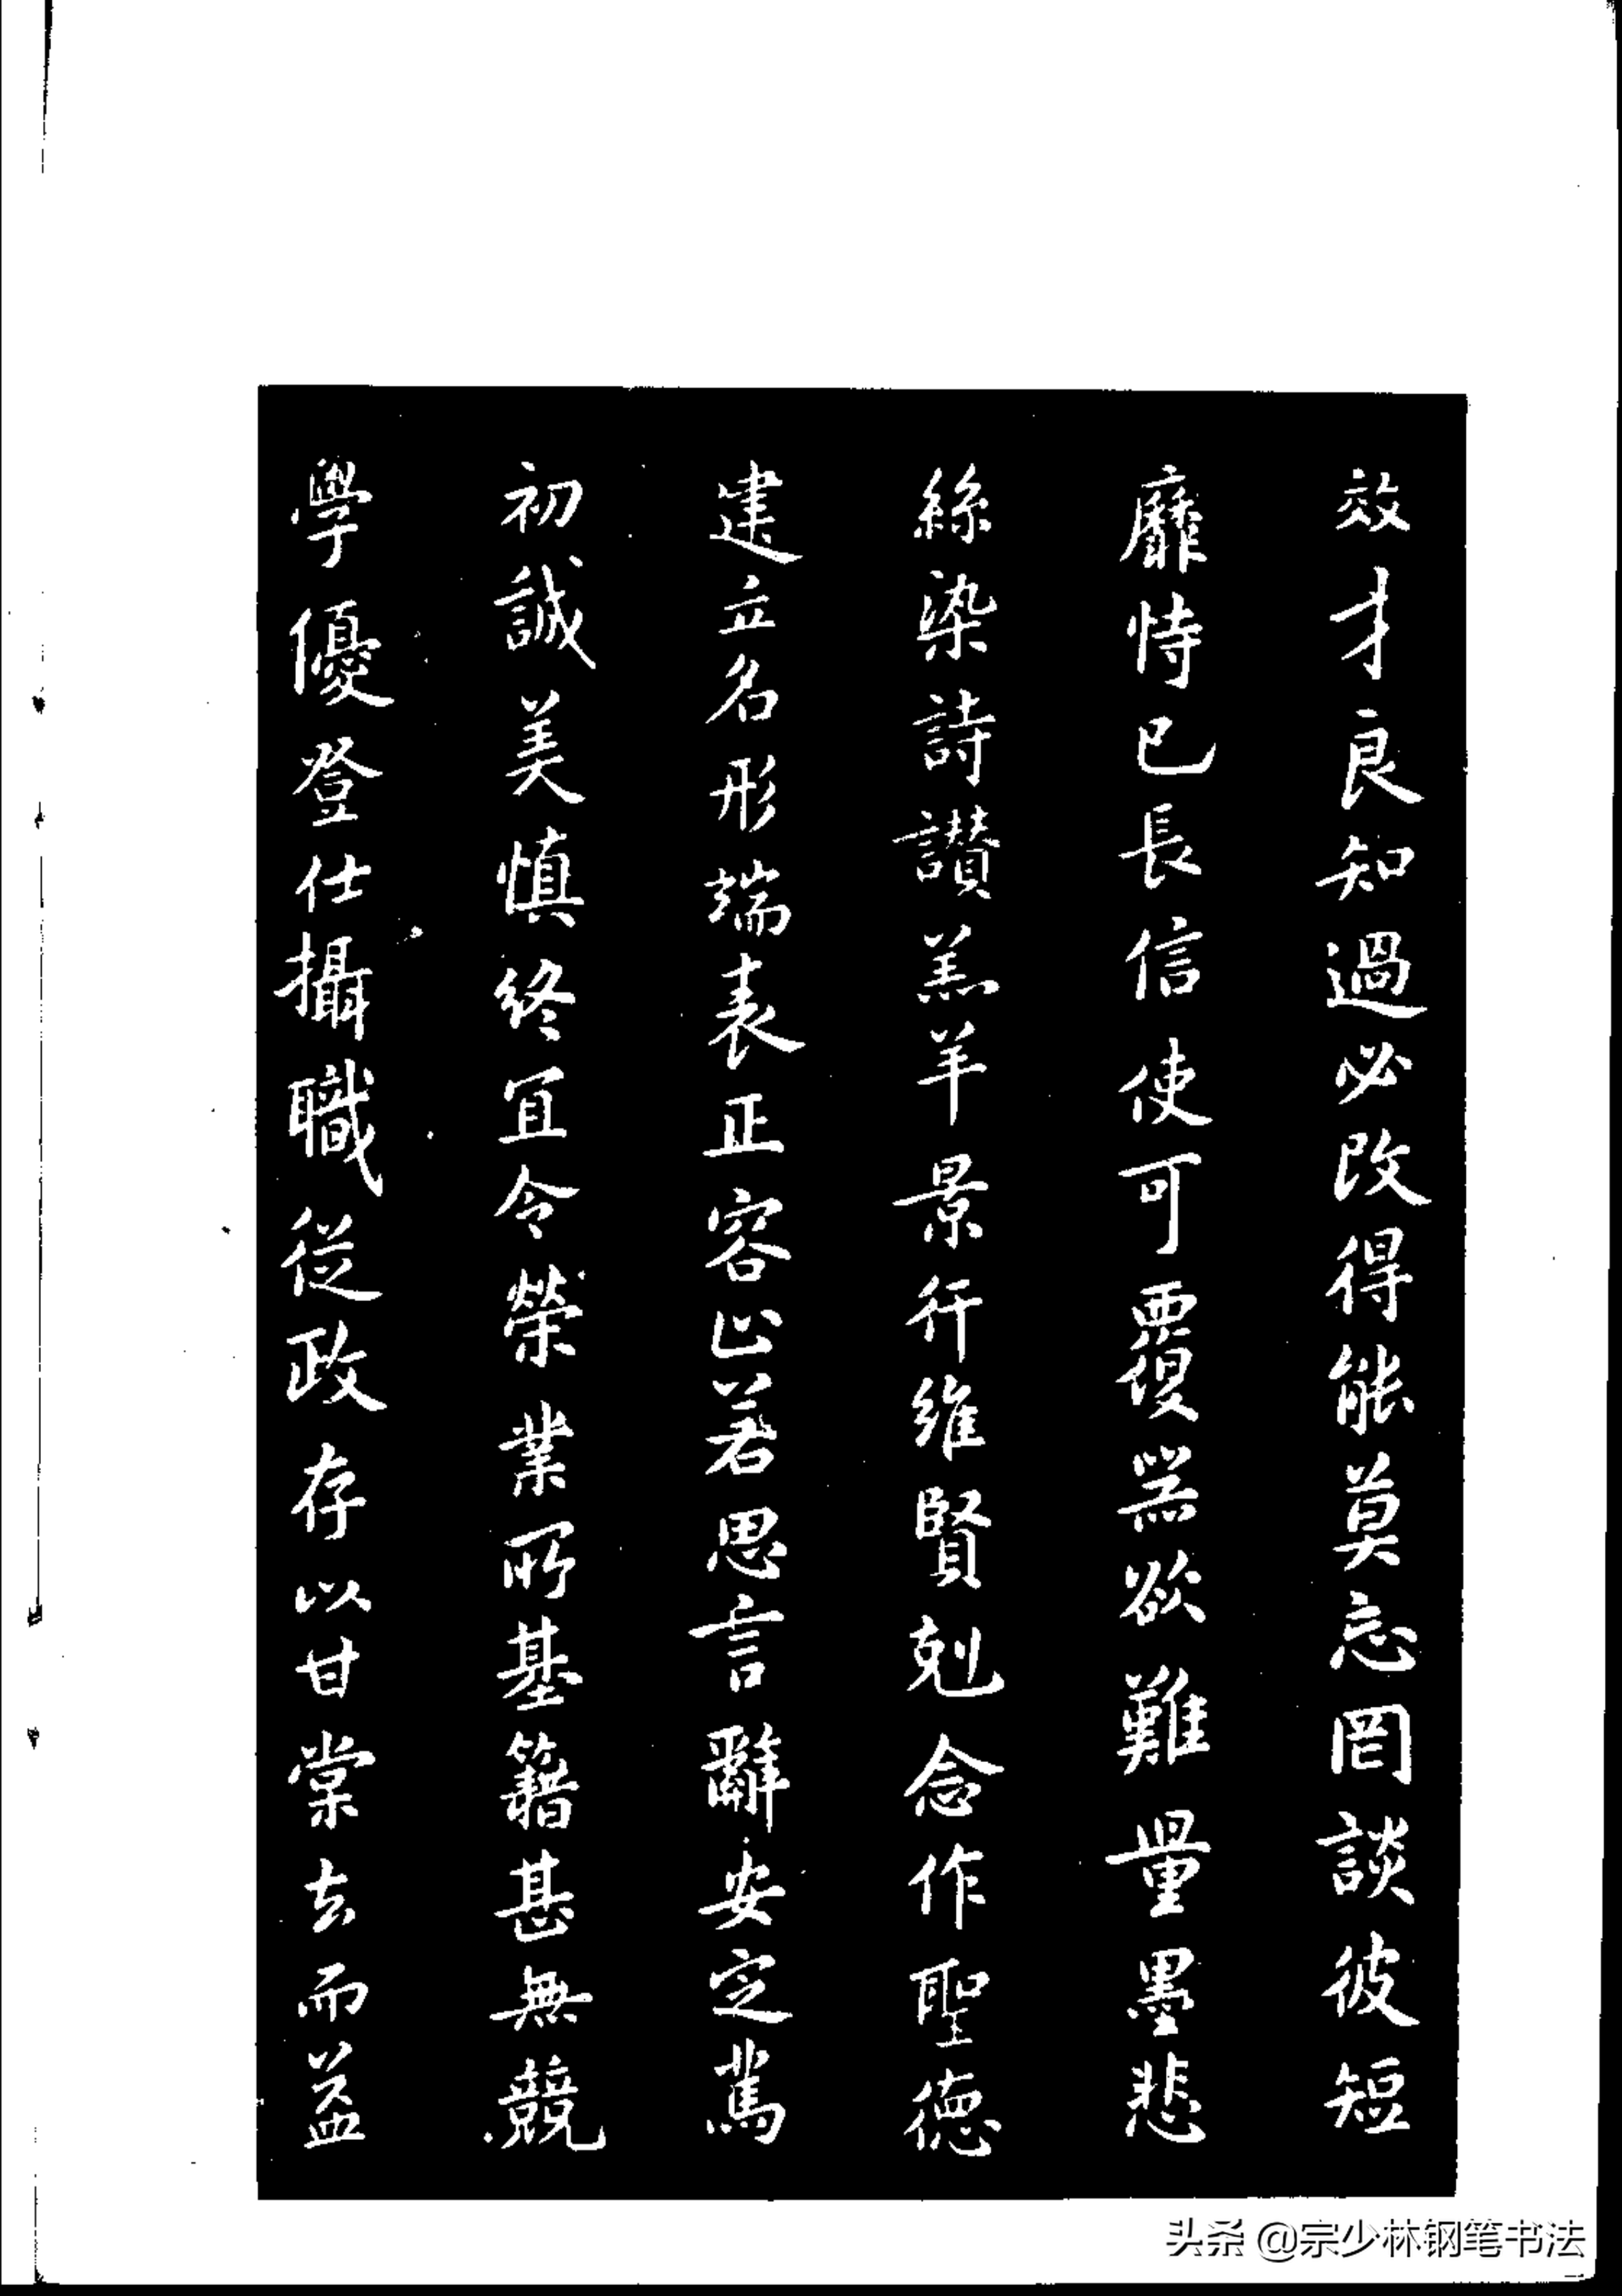 效才良知過必改得能莫忘罔談彼短
靡恃己長信使可覆器欲難量墨悲
絲染詩讃羔羊景行維賢剋念作聖德
建立名形端表正容止若思言辭安定篤
初誠美慎終宜令榮業所基籍甚無競
學優登仕攝職從政存以甘棠去而益
头条 @宗少林钢笔书法